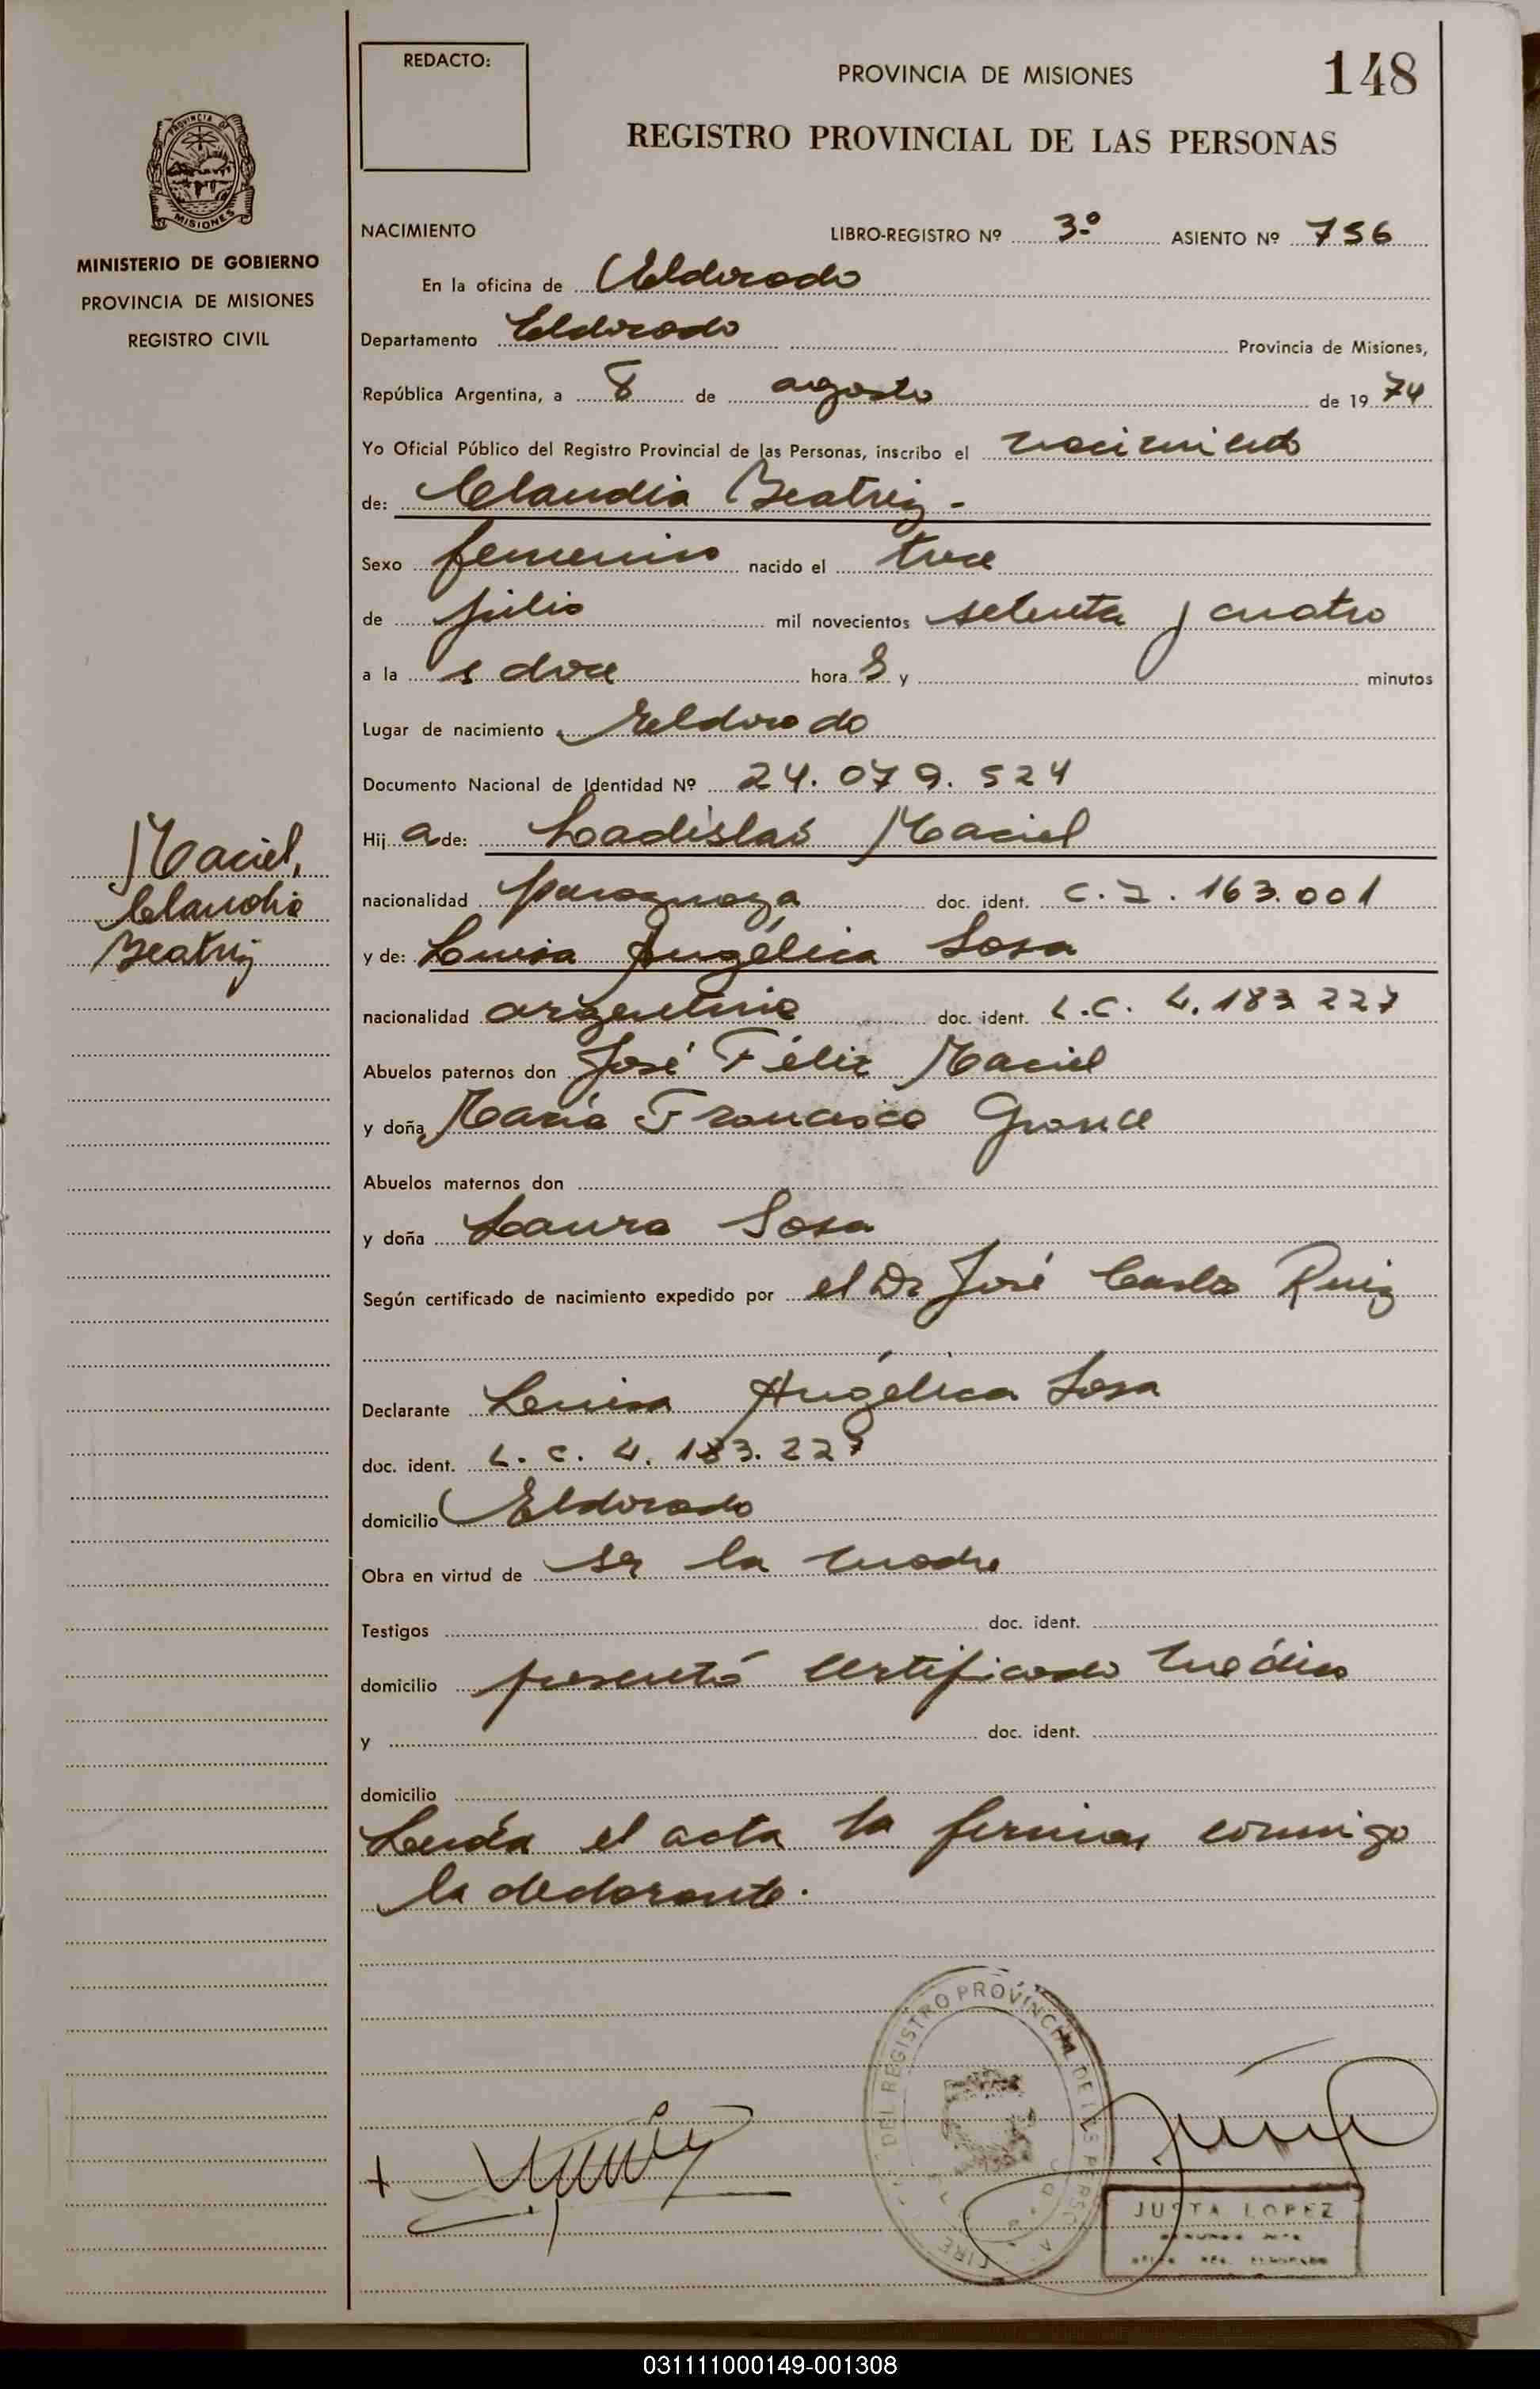 REDACTO:
PROVINCIA DE MISIONES
148
REGISTRO PROVINCIAL DE LAS PERSONAS
PROVINCIA DE
MISIONES
MINISTERIO DE GOBIERNO
PROVINCIA DE MISIONES
REGISTRO CIVIL
NACIMIENTO LIBRO-REGISTRO Nº 3º ASIENTO Nº 756
En la oficina de Eldorado
Departamento Eldorado Provincia de Misiones,
República Argentina, a 8 de agosto de 1974
Yo Oficial Público del Registro Provincial de las Personas, inscribo el nacimiento
de: Claudia Beatriz -
Sexo femenino nacido el trece
de julio mil novecientos setenta y cuatro
a las doce horas y minutos
Lugar de nacimiento Eldorado
Documento Nacional de Identidad Nº 24.079.524
Hija de: Ladislaó Maciel
nacionalidad paraguaya doc. ident. C.I. 163.001
y de: Luisa Angélica Sosa
nacionalidad argentina doc. ident. L.C. 4.183 227
Abuelos paternos don José Félix Maciel
y doña María Francisca
Abuelos maternos don
y doña Laura Sosa
Según certificado de nacimiento expedido por el Dr José Carlos Ruiz
Declarante Luisa Angélica Sosa
doc. ident. L.C. 4.183.227
domicilio Eldorado
Obra en virtud de ser la madre
Testigos doc. ident.
domicilio presentó certificado médico
y doc. ident.
domicilio
Leída el acta la firman conmigo
la declarante.
Maciel,
Claudia
Beatriz
DEL REGISTRO PROVINCIAL DE LAS PERSO
JUSTA LOPEZ
031111000149-001308